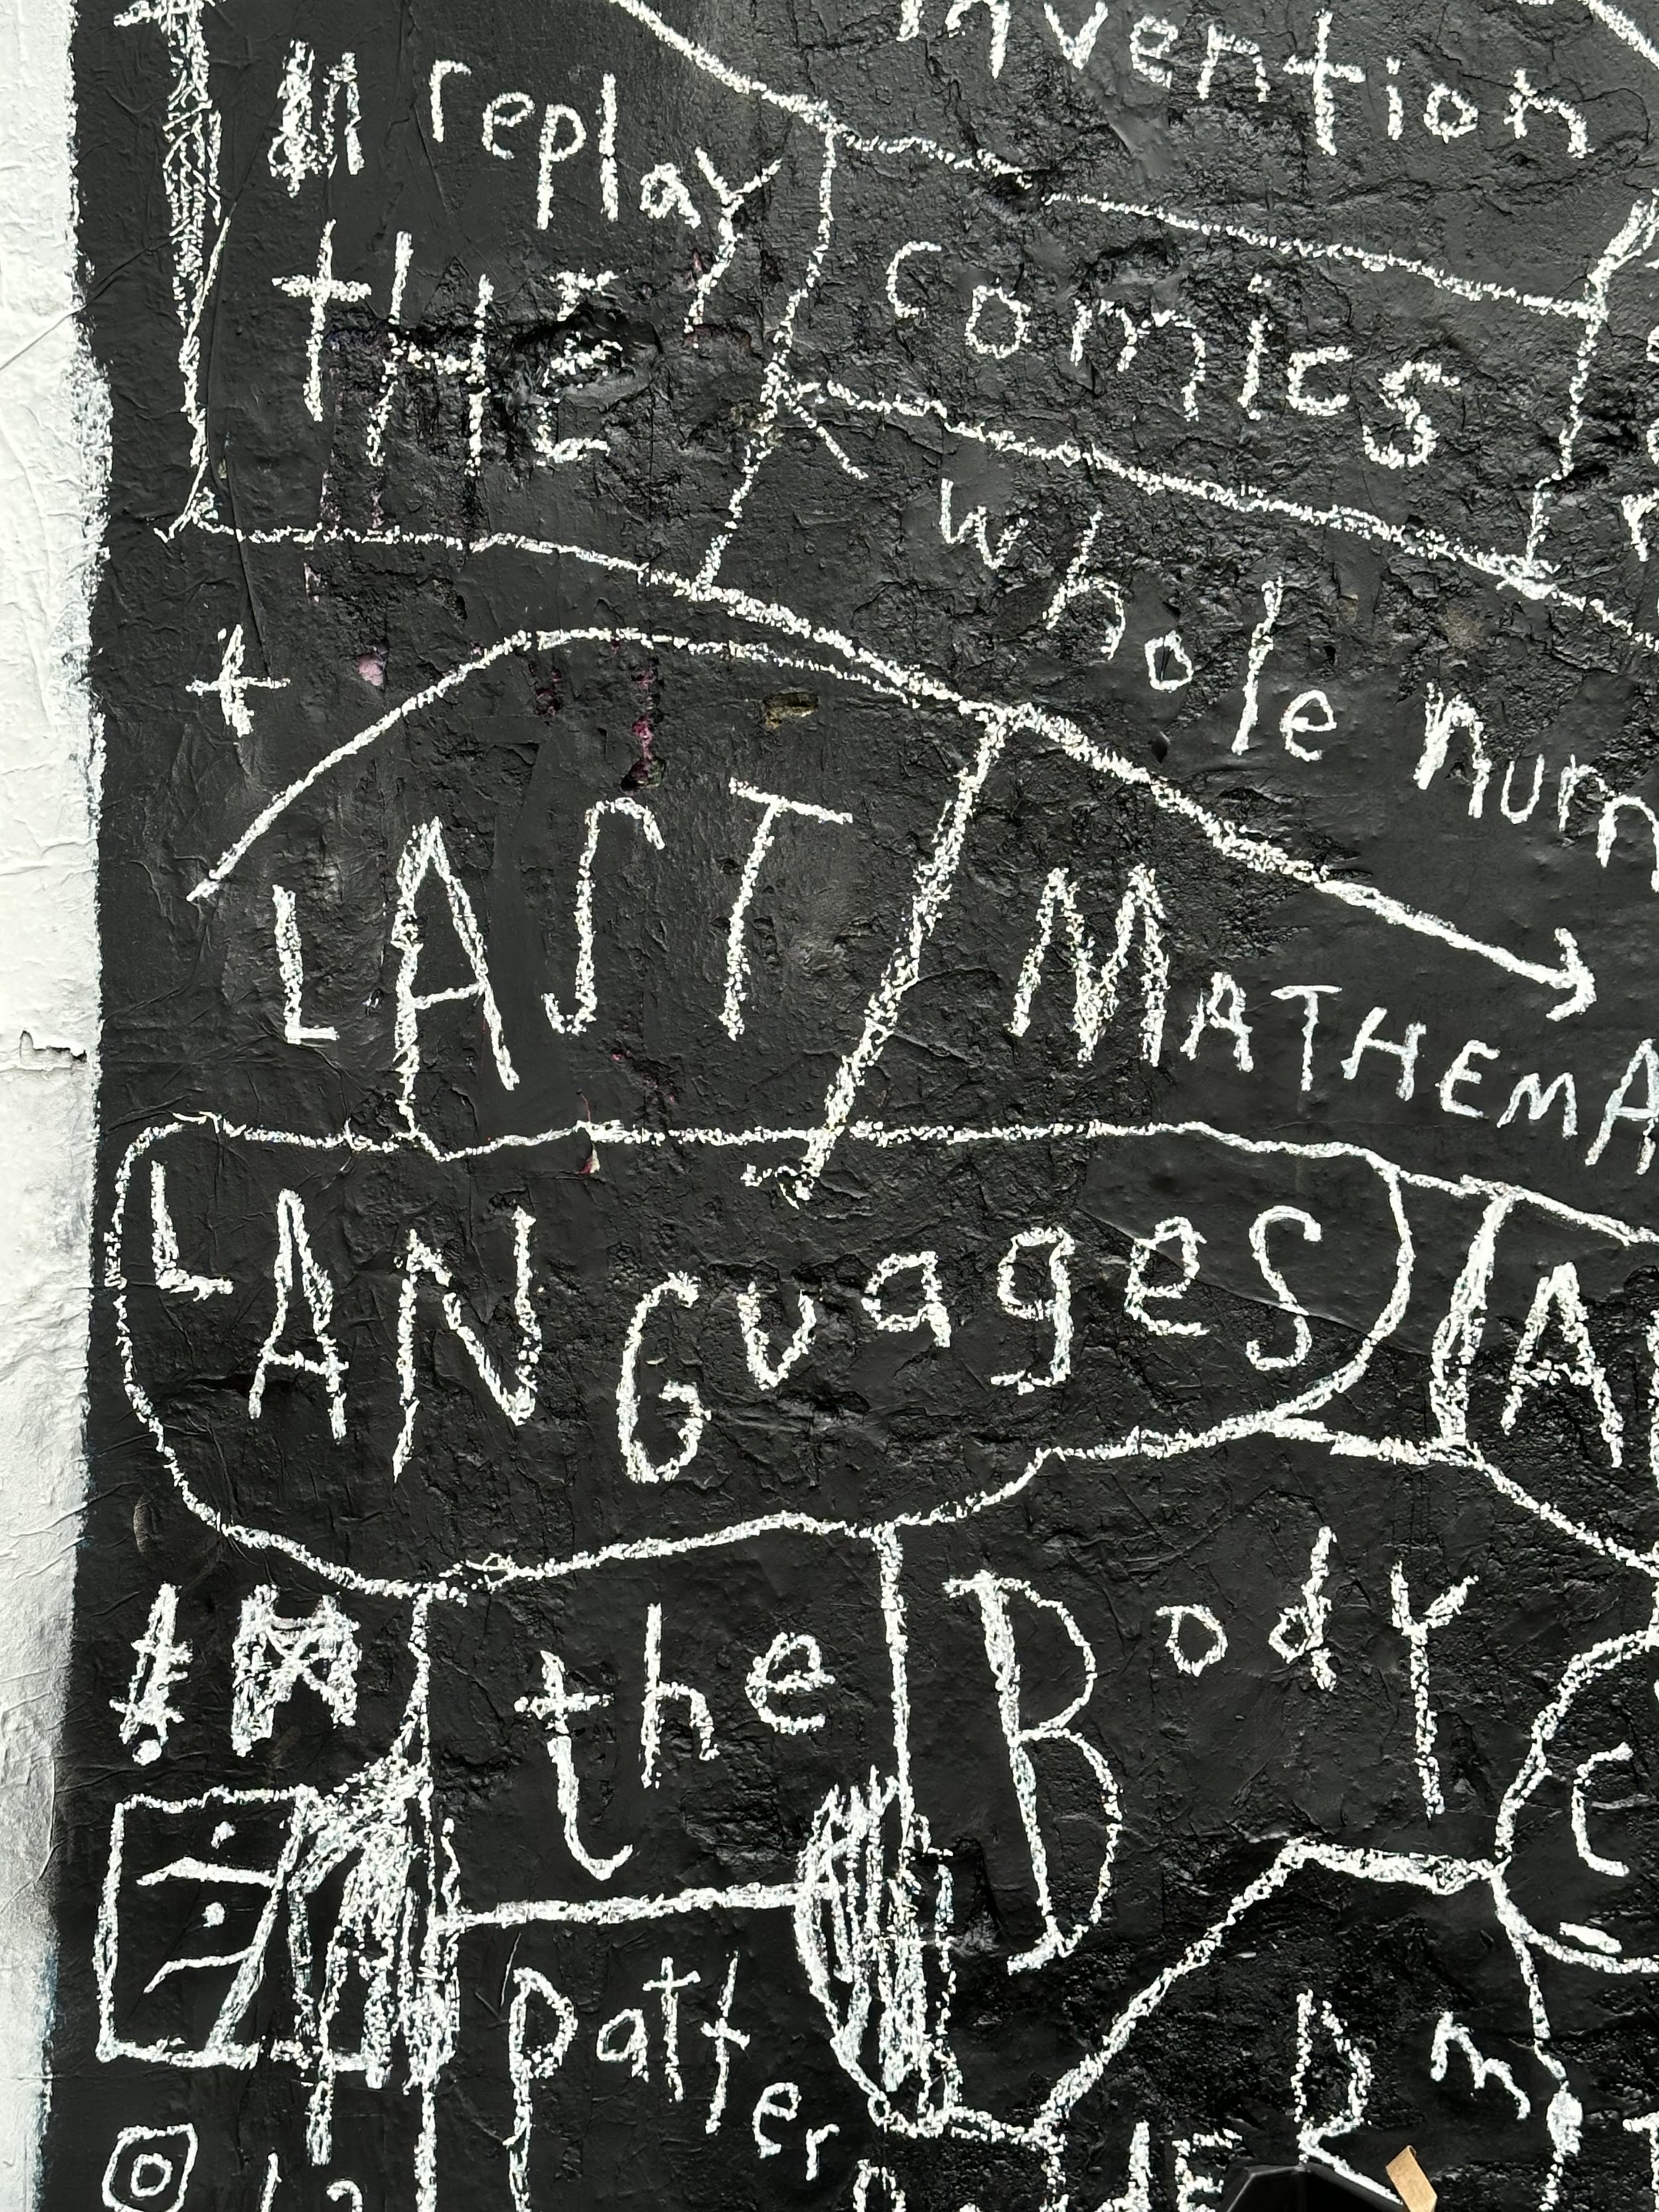 invention
replay
tHE
comics
whole num
t
LAST
MATHEMA
LANGuageS
the
BodY
Patter